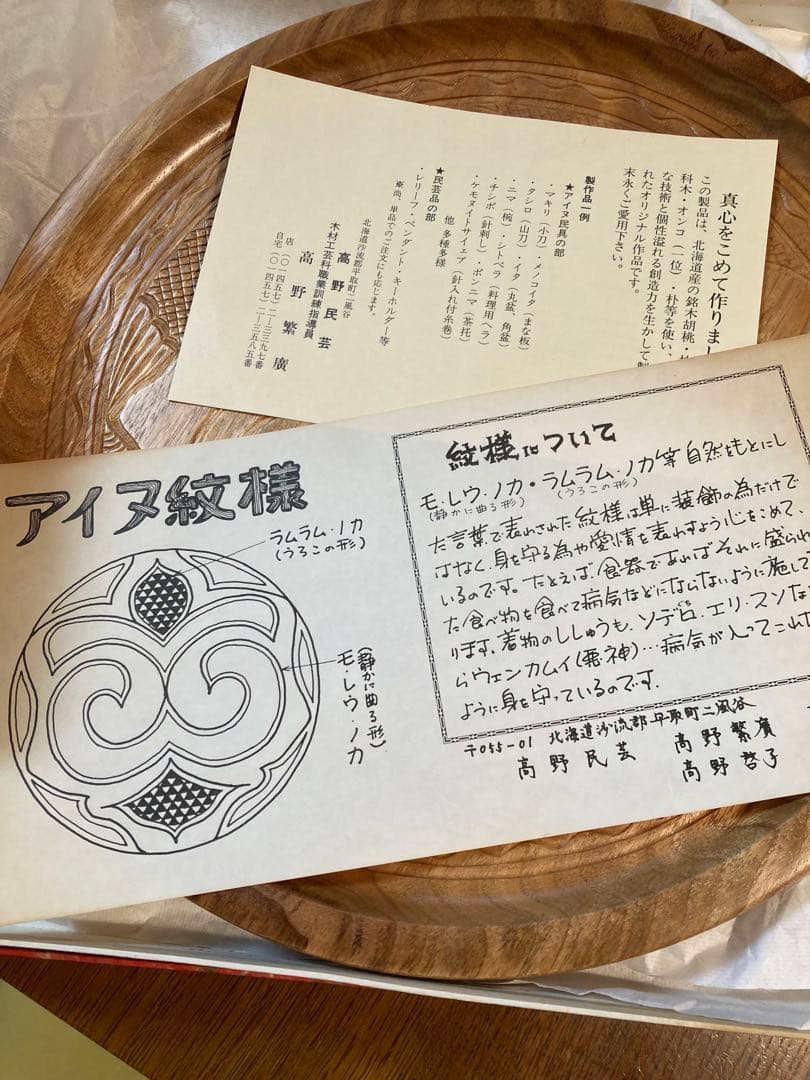 真心をこめて作りまし
この製品は、北海道産の銘木胡桃・
科木・オンコ（一位）・朴等を使い、
な技術と個性溢れる創造力を生かして
れたオリジナル作品です。
末永くご愛用下さい。
製作品一例
★アイヌ民具の部
・マキリ（小刀）・メンコイタ（まな板）
・タシロ（山刀）・イタ（丸盆、角盆）
・ニマ（椀）・シトペラ（料理用ヘラ）
・チシポ（針刺し）・ポンニマ（茶托）
・ケモヌイトサイェプ（針入れ付糸巻）
他 多種多様
★民芸品の部
・レリーフ・ペンダント・キーホルダー等
尚、単品でのご注文にも応じます。
北海道沙流郡平取町二風谷
高野民芸
木材工芸科職業訓練指導員
高野繁廣
店 〇一四五七）二ー三三九七番
自宅〇一四五七）二ー三五八五番
アイヌ紋様
ラムラム・ノカ
（うろこの形）
モ・レウ・ノカ
（静かに曲る形）
紋様について
モ・レウ・ノカ・ラムラム・ノカ等自然をもとにし
（静かに曲る形）（うろこの形）
た言葉で表わされた紋様は単に装飾の為だけで
はなく、身を守る為や愛情を表わすよう心をこめて、
いるのです。たとえば、食器であればそれに盛られ
た食べ物を食べて病気などにならないように施して
ります。着物のししゅうも、ソデ口、エリ・スソな
らウェンカムイ（悪神）…病気が入ってこれな
ように身を守っているのです。
〒055-01 北海道沙流郡平取町二風谷
高野民芸 高野繁廣
高野啓子